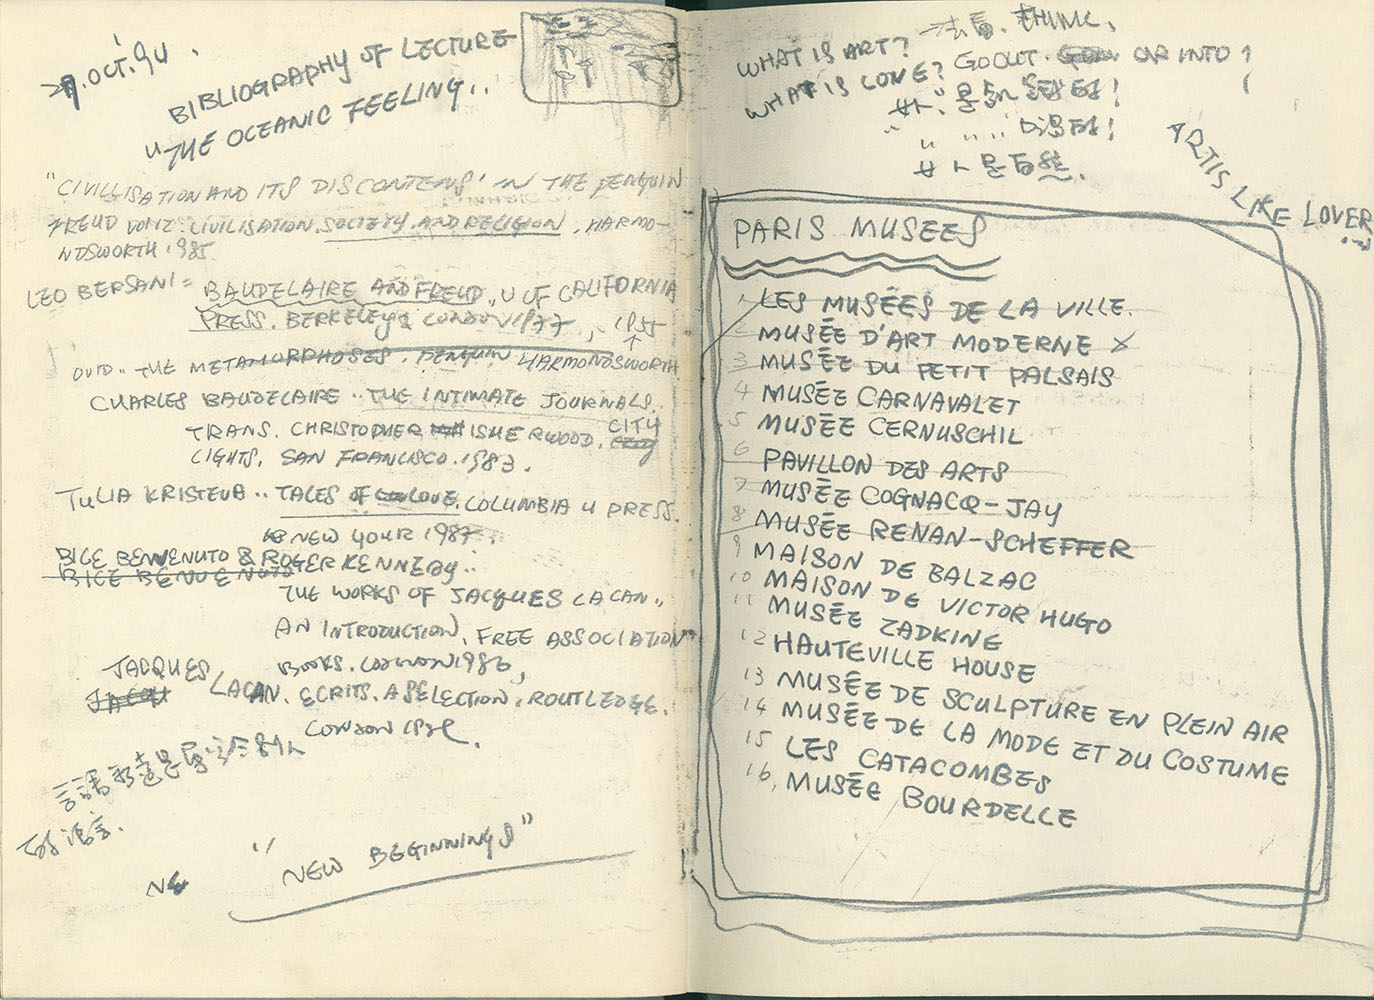 OCT. 94.
BIBLIOGRAPHY OF LECTURE
"THE OCEANIC FEELING..
"CIVILLISATION AND ITS DISCONTENS' IN THE PENGUIN
FREUD CIVILISATION. SOCIETY. AND RELIGION. HARMO-
NDSWORTH. 1985
LEO BERSANI = BAUDELAIRE AND FREUD.. U OF CALIFORNIA
PRESS. BERKELEY & LONDON 1977, 1955
OVID.. THE METAMORPHOSES. PENGUIN HARMONDSWORTH
CHARLES BAUDELAIRE.. THE INTIMATE JOURNALS.
TRANS. CHRISTOPHER ISHERWOOD. CITY
LIGHTS. SAN FRANCISCO. 1983.
JULIA KRISTEVA.. TALES OF LOVE. COLUMBIA U PRESS.
NEW YOUR 1987.
BICE BENVENUTO & ROGER KENNEDY..
BICE BENVENUTO
THE WORKS OF JACQUES LACAN..
AN INTRODUCTION. FREE ASSOCIATION
BOOKS. LONDON 1986,
JACQUES
JACQU LACAN. ECRITS. A SELECTION. ROUTLEDGE.
LONDON
言語
語言.
NE
"NEW BEGINNINGS"
WHAT IS ART?
WHAT IS LOVE? GO OUT. OR INTO?
ART IS LIKE LOVER
PARIS MUSEES
1 LES MUSÉES DE LA VILLE.
2 MUSÉE D'ART MODERNE X
3 MUSÉE DU PETIT PALSAIS
4 MUSÉE CARNAVALET
5 MUSÉE CERNUSCHIL
6 PAVILLON DES ARTS
7 MUSÉE COGNACQ-JAY
8 MUSÉE RENAN-SCHEFFER
9 MAISON DE BALZAC
10 MAISON DE VICTOR HUGO
11 MUSÉE ZADKINE
12 HAUTEVILLE HOUSE
13 MUSÉE DE SCULPTURE EN PLEIN AIR
14 MUSÉE DE LA MODE ET DU COSTUME
15 LES CATACOMBES
16, MUSÉE BOURDELLE